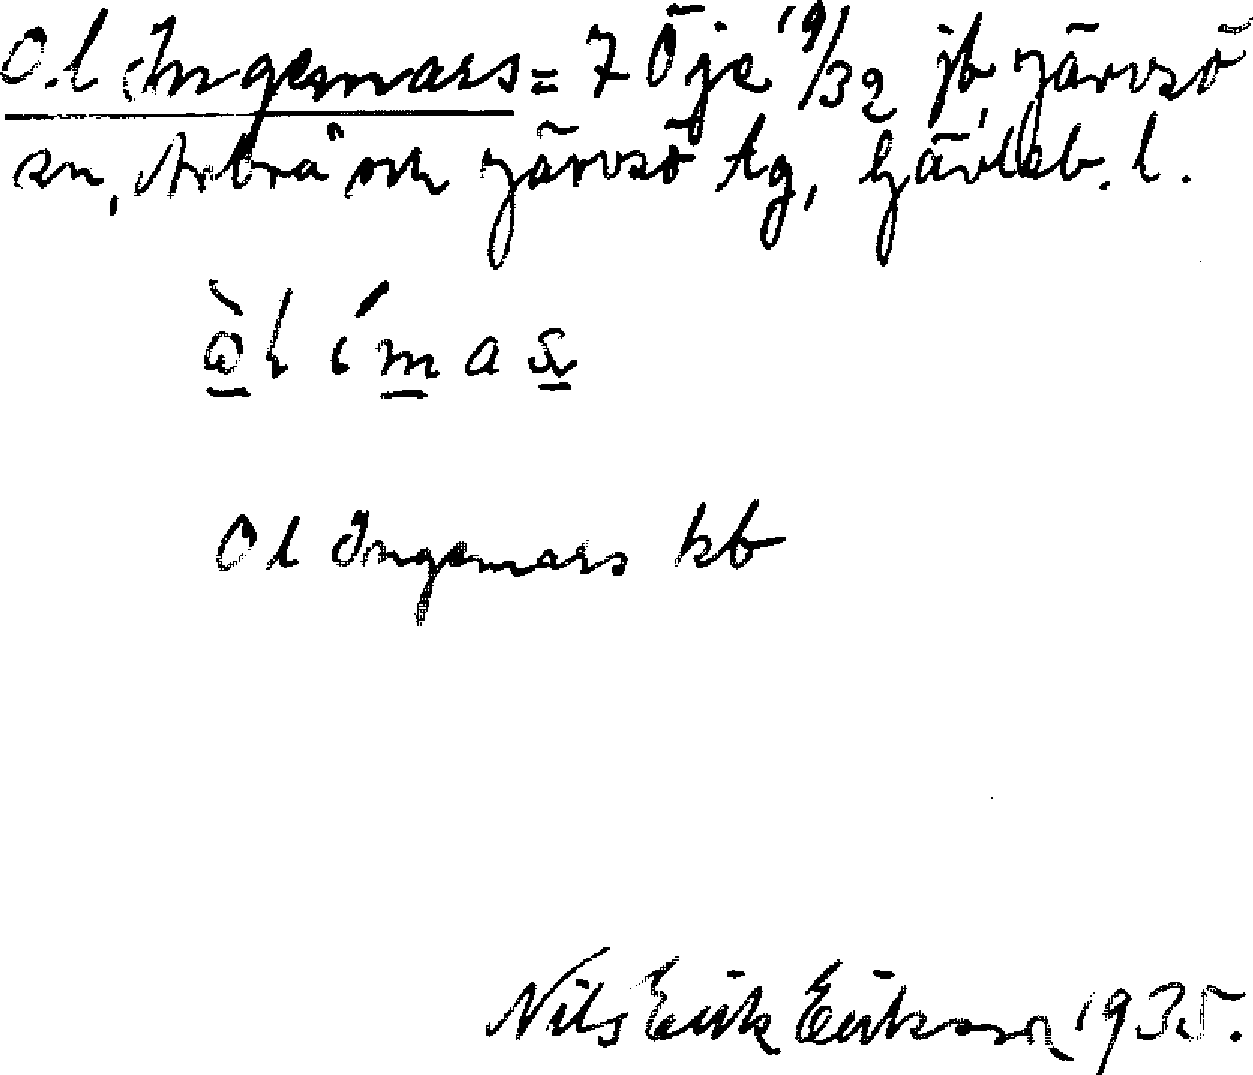 Ol Ingemars = 7 Öje 19/32 jb, Järvsö
sn, Arbrå och Järvsö tg, Gävleb. l.
Ol Ingemars kb
Nils Erik Erikson 1935.